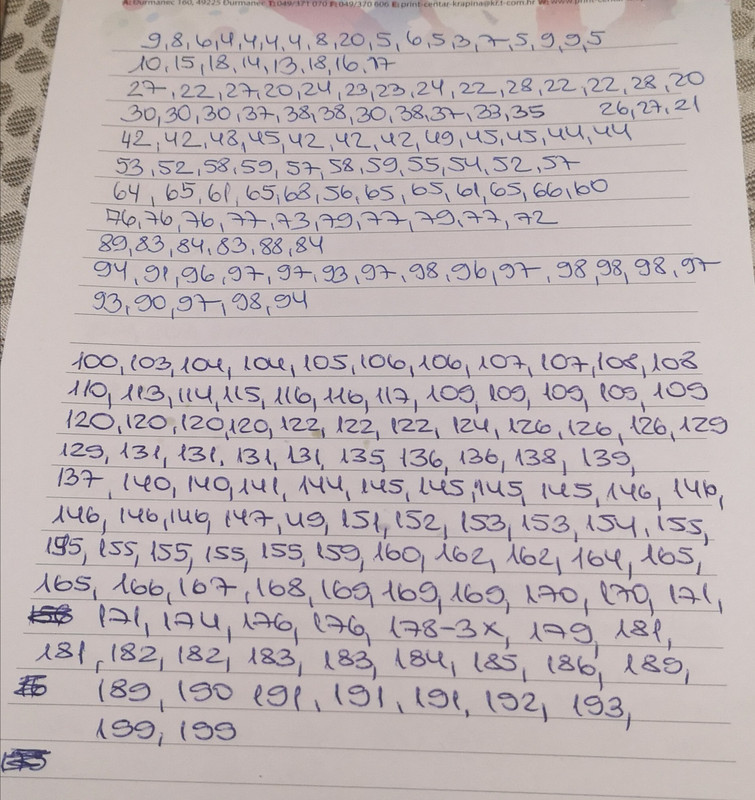 A: Durmanec 160, 49225 Durmanec T: 049/371 070 F: 049/370 606 E: print-centar-krapina@kr.t-com.hr W: www.
9,8,6,4,4,4,4,8,20,5,6,5,3,7,5,9,9,5
10,15,18,14,13,18,16,17
27,22,27,20,24,23,23,24,22,28,22,22,28,20
30,30,30,37,38,38,30,38,37,33,35 26,27,21
42,42,43,45,42,42,42,49,45,45,44,44
53,52,58,59,57,58,59,55,54,52,57
64,65,61,65,68,56,65,65,61,65,66,60
76,76,76,77,73,79,77,79,77,72
89,83,84,83,88,84
94,91,96,97,97,93,97,98,96,97,98,98,98,97
93,90,97,98,94
100,103,104,104,105,106,106,107,107,108,108
110,113,114,115,116,116,117,109,109,109,109,109
120,120,120,120,122,122,122,124,126,126,126,129
129,131,131,131,131,135,136,136,138,139,
137,140,140,141,144,145,145,145,145,146,146,
146,146,146,147,49,151,152,153,153,154,155,
155,155,155,155,155,159,160,162,162,164,165,
165,166,167,168,169,169,169,170,170,171,
171,174,176,176,178-3x,179,181,
181,182,182,183,183,184,185,186,189,
189,190 191,191,191,192,193,
199,199